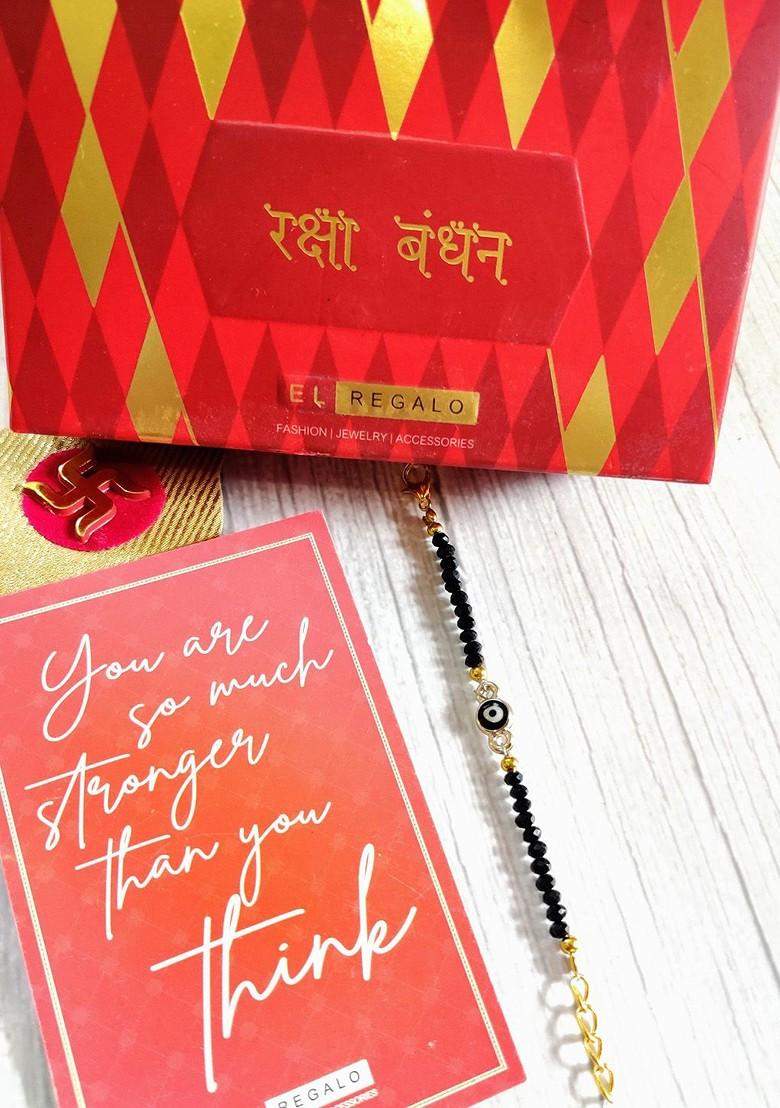 रक्षा बंधन
EL REGALO
FASHION | JEWELRY | ACCESSORIES
You are
so much
stronger
than you
think
REGALO